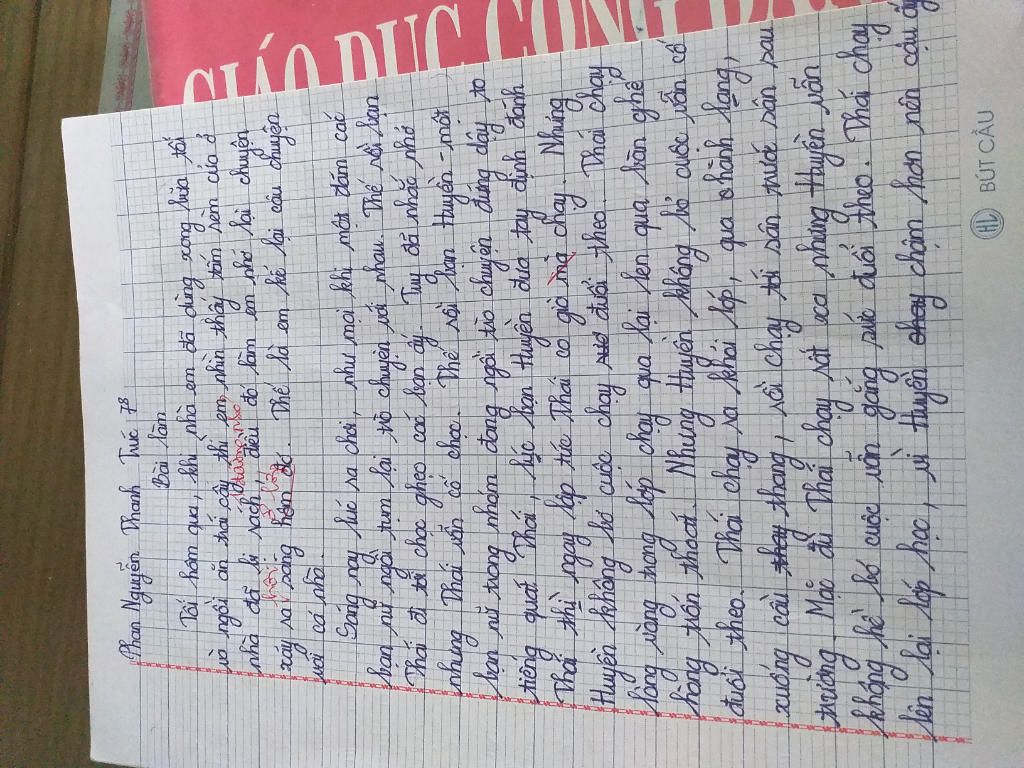 GIÁO DỤC CÔNG DÂN
Phan Nguyễn Thanh Trúc 7/8
Bài làm
Tối hôm qua, khi nhà em đã dùng xong bữa tối
và ngồi ăn trái cây thì em nhìn thấy tấm rèm cửa ở
nhà đã bị rách, điều đó làm em nhớ lại chuyện
xảy ra sáng hôm đó. Thế là em kể lại câu chuyện
với cả nhà.
hồi ở lớp
Sáng nay lúc ra chơi, như mọi khi một đám các
bạn nữ ngồi tụm lại trò chuyện với nhau. Thế rồi bạn
Thái đi tới chọc ghẹo các bạn ấy. Tuy đã nhắc nhở
nhưng Thái vẫn cố chọc. Thế rồi bạn Huyền - một
bạn nữ trong nhóm đang ngồi trò chuyện đứng dậy to
tiếng quát Thái, lúc bạn Huyền đưa tay định đánh
Thái thì ngay lập tức Thái co giò mà chạy. Nhưng
Huyền không bỏ cuộc chạy đuổi theo. Thái chạy
lòng vòng trong lớp chạy qua lại len qua bàn ghế
hòng trốn thoát. Nhưng Huyền không bỏ cuộc vẫn cố
đuổi theo. Thái chạy ra khỏi lớp, qua hành lang,
xuống cầu thang, rồi chạy tới sân trước sân sau
trường. Mặc dù Thái chạy rất xa nhưng Huyền vẫn
không hề bỏ cuộc vẫn gắng sức đuổi theo. Thái chạy
lên lại lớp học, vì Huyền chậm hơn nên cậu ấy
HL BÚT CẦU